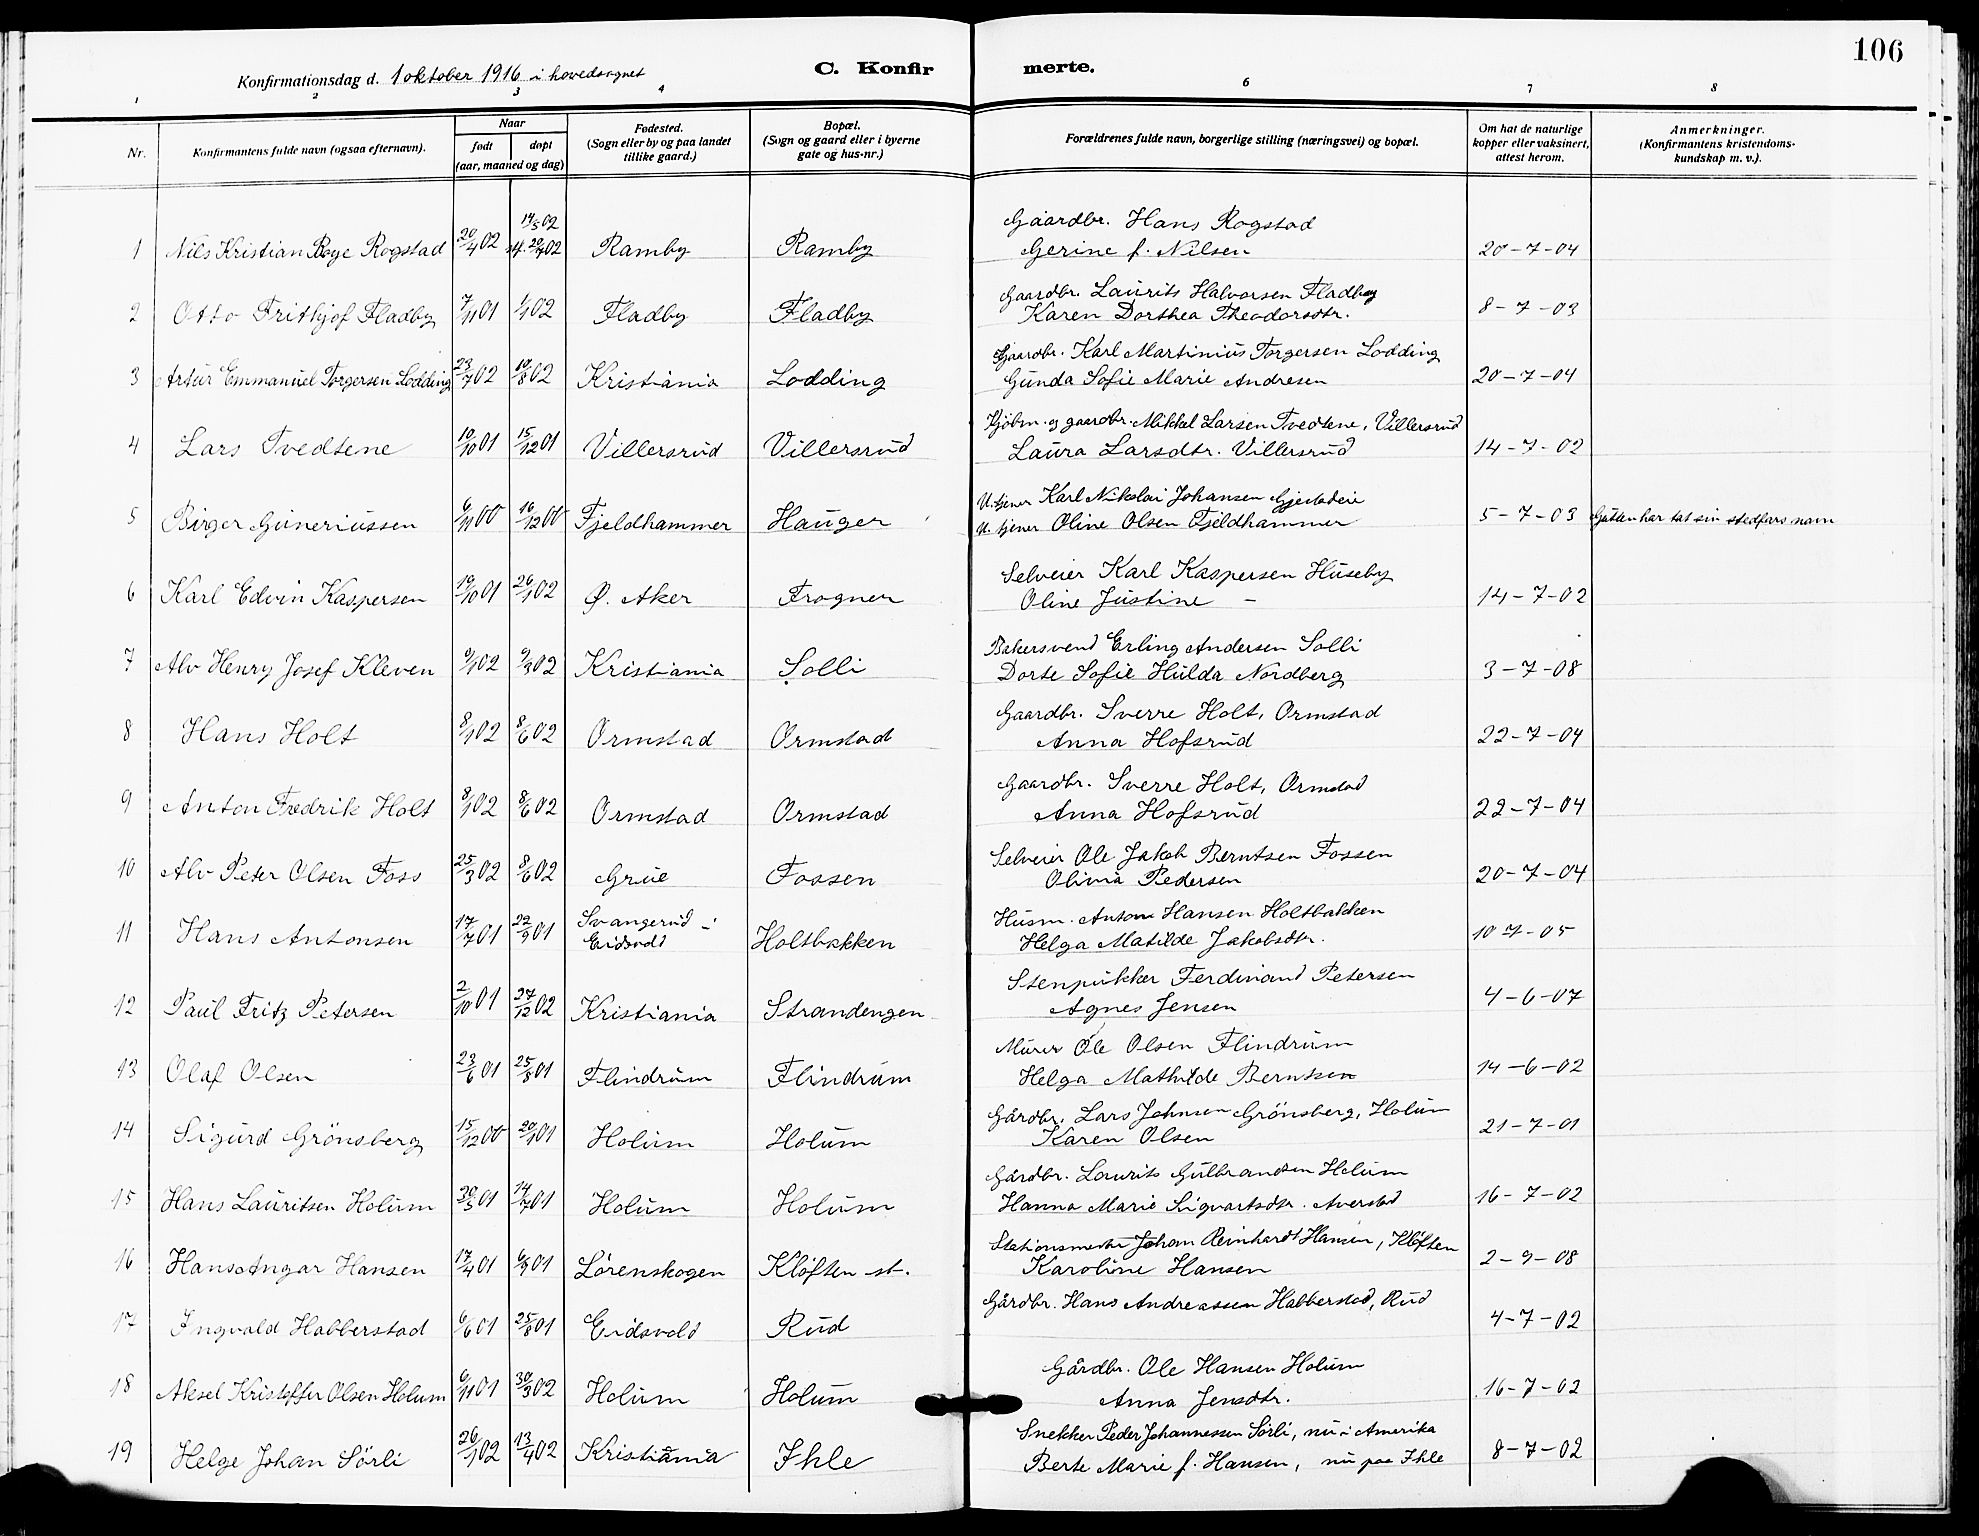 106
Konfirmationsdag d. 1 oktober 1916 i hovedsognet
C. Konfir merte.
1 2 3 4 6 7 8
Nr.
Konfirmantens fulde navn (ogsaa efternavn).
Naar
født døpt
(aar, maaned og dag)
Fødested.
(Sogn eller by og paa landet
tillike gaard.)
Bopæl.
(Sogn og gaard eller i byerne
gate og hus-nr.)
Forældrenes fulde navn, borgerlige stilling (næringsvei) og bopæl.
Om hat de naturlige
kopper eller vaksinert,
attest herom.
Anmerkninger.
(Konfirmantens kristendoms-
kundskap m. v.).
Gaardbr. Hans Rogstad
1 Nils Kristian Boye Rogstad 20/4 02 Ramby Ramby Gerine f. Nilsen 20-7-04
Gaardbr. Laurits Halvorsen Fladby
2 Otto Frithjof Fladby 7/11 01 1/1 02 Fladby Fladby Karen Dorthea Theodorsdtr. 8-7-03
Gaardbr. Karl Martinius Torgersen Lodding
3 Artur Emmanuel Torgersen Lodding 23/7 02 10/8 02 Kristiania Lodding Gunda Sofie Marie Andresen 20-7-04
Kjøbm. og gaardbr. Mikkel Larsen Tvedtene, Villersrud
4 Lars Tvedtene 10/10 01 15/12 01 Villersrud Villersrud Laura Larsdtr. Villersrud 14-7-02
U. tjener Karl Nikolai Johansen
5 Birger Guneriussen 6/11 00 16/12 00 Fjeldhammer Hauger U. tjener Oline Olsen Fjeldhammer 5-7-03 Gutten har tat sin stedfars navn
Selveier Karl Kaspersen Huseby
6 Karl Edvin Kaspersen 19/10 01 26/1 02 Ø. Aker Frogner Oline Justine - 14-7-02
Bakersvend Erling Andersen Solli
7 Alv Henry Josef Kleven 9/1 02 9/3 02 Kristiania Solli Dorte Sofie Hulda Nordberg 3-7-08
Gaardbr. Sverre Holt, Ormstad
8 Hans Holt 8/1 02 8/6 02 Ormstad Ormstad Anna Hofsrud 22-7-04
Gaardbr. Sverre Holt, Ormstad
9 Anton Fredrik Holt 8/1 02 8/6 02 Ormstad Ormstad Anna Hofsrud 22-7-04
Selveier Ole Jakob Berntsen Fossen
10 Alv Peter Olsen Foss 25/3 02 8/6 02 Grue Fossen Olivia Pedersen 20-7-04
Husm. Anton Hansen Holtbakken
11 Hans Antonsen 17/7 01 22/9 01 Svangerud i Eidsvold Holtbakken Helga Matilde Jakobsdtr. 10 7-05
Stenpukker Ferdinand Petersen
12 Paul Fritz Petersen 2/10 01 27/12 02 Kristiania Strandengen Agnes Jensen 4-6-07
Murer Ole Olsen Flindrum
13 Olaf Olsen 23/6 01 25/8 01 Flindrum Flindrum Helga Mathilde Berntsen 14-6-02
Gårdbr. Lars Johnsen Grönsberg, Holum
14 Sigurd Grönsberg 15/12 00 20/1 01 Holum Holum Karen Olsen 21-7-01
Gårdbr. Laurits Gulbrandsen Holum
15 Hans Lauritsen Holum 30/5 01 14/7 01 Holum Holum Hanna Marie Sigvartsdtr. Averstad 16-7-02
Stationsmester Johan Reinhardt Hansen, Kløften
16 Hans Angar Hansen 17/4 01 6/9 01 Lørenskogen Kløften st. Karoline Hansen 2-9-08
Gårdbr. Hans Andreassen Habberstad, Rud
17 Ingvald Habberstad 6/6 01 25/8 01 Eidsvold Rud 4-7-02
Gårdbr. Ole Hansen Holum
18 Aksel Kristoffer Olsen Holum 6/11 01 30/3 02 Holum Holum Anna Jensdtr. 16-7-02
Snekker Peder Johannessen Sörli, nu i Amerika
19 Helge Johan Sörli 26/1 02 13/4 02 Kristiania Ihle Berte Marie f. Hansen, nu paa Ihle 8-7-02